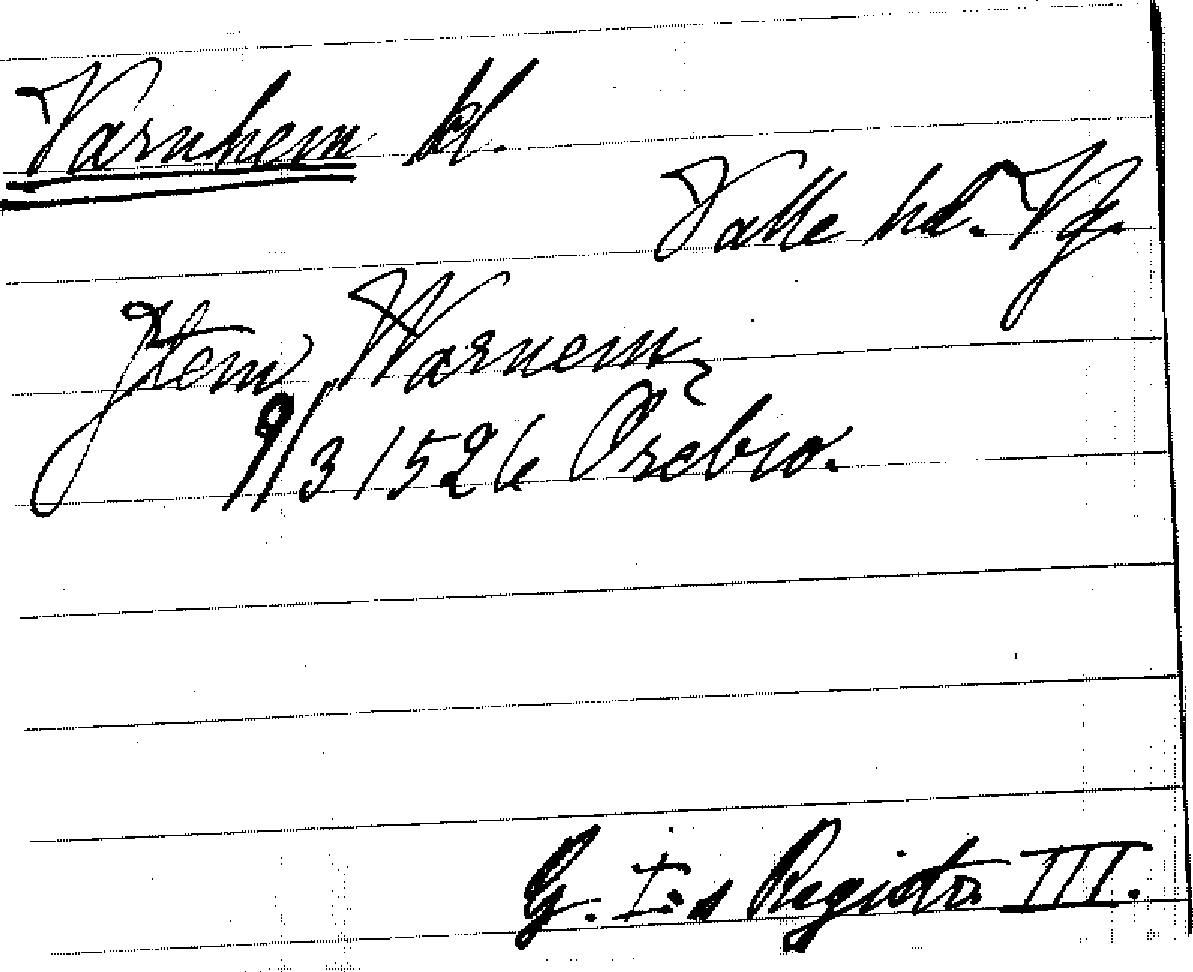 Varnhem kl.
Valle hd. Vg.
Jtem Warnem,
9/3 1526 Örebro.
G. I:s Registr. III.